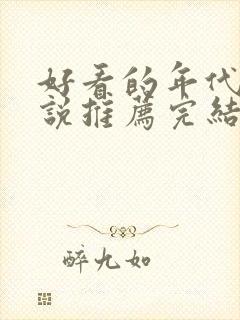 好看的年代
說推薦完結
醉九如